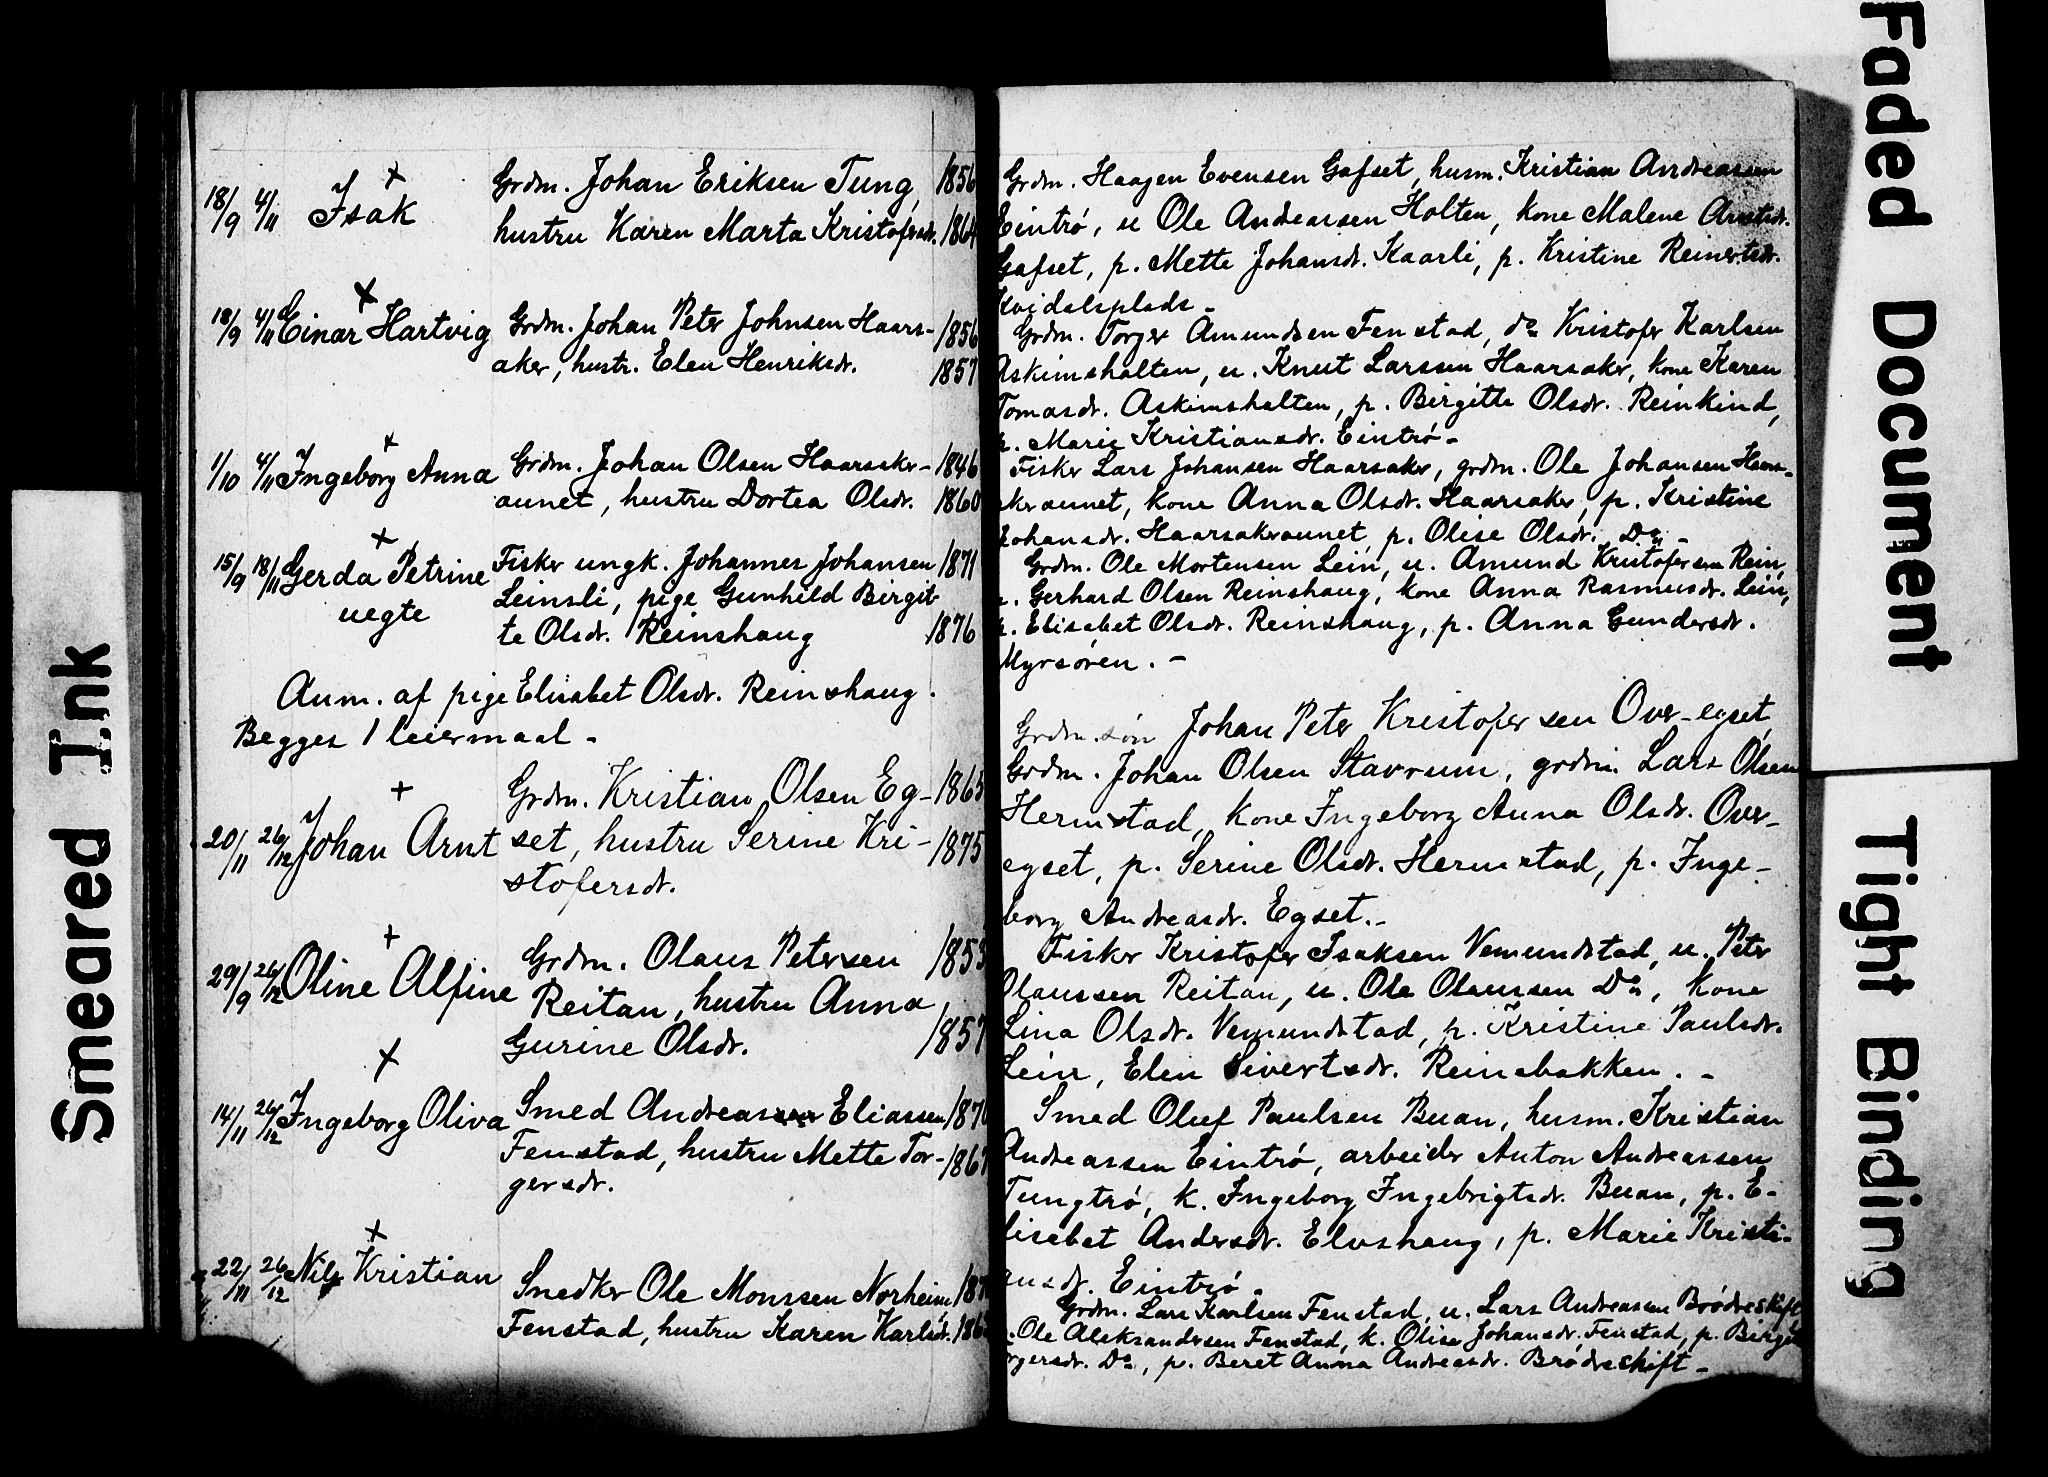 18/9 4/11 Isak
Grdm. Johan Eriksen Tung, 1856
hustru Karen Marta Kristofersdr. 1864
18/9 4/11 Einar Hartvig
Grdm. Johan Peter Johnsen Haars- 1856
aker, hustr. Elen Henriksdr. 1857
1/10 4/11 Ingeborg Anna
Grdm. Johan Olsen Haarsaker- 1846
aunet, hustru Dortea Olsdr. 1860
15/9 18/11 Gerda Petrine
uegte
Fisker ungk. Johannes Johansen 1871
Leinsli, pige Gunhild Birgit-
te Olsdr. Reinshaug 1876
Anm. af pige Elisabet Olsdr. Reinshaug.
Begges 1 leiermaal -
20/11 26/12 Johan Arnt
Grdm. Kristian Olsen Eg- 1865
set, hustru Serine Kri- 1875
stofersdr.
29/9 26/12 Oline Alfine
Grdm. Olaus Petersen 1853
Reitan, hustru Anna
Gurine Olsdr. 1857
14/11 26/12 Ingeborg Oliva
Smed Andreas Eliassen 1870
Fenstad, hustru Mette Tor- 1867
gersdr.
22/11 26/12 Nils Kristian
Snedker Ole Monssen Norheim 187
Fenstad, hustru Karen Karlsdr. 186
Grdm. Haagen Evensen Gafset, husm. Kristian Andreassen
Eintrö, u Ole Andreassen Holten, kone Malene Arntsdr.
Gafset, p. Mette Johansdr. Kaarli, p. Kristine Reinertsdr.
Kvidalsplads -
Grdm. Torger Amundsen Fenstad, do Kristofer Karlsen
Askimshalten, u. Knut Larssen Haarsaker, kone Karen
Tomasdr. Askimshalten, p. Birgitte Olsdr. Reinkind,
p. Marie Kristiansdr. Eintrö -
Fisker Lars Johansen Haarsaker, grdm. Ole Johansen Haars-
akeraunet, kone Anna Olsdr. Haarsaker, p. Kristine
Johansdr. Haarsakeraunet, p. Olise Olsdr. Do -
Grdm. Ole Mortensen Lein, u. Amund Kristofersen Rein,
u. Gerhard Olsen Reinshaug, kone Anna Rasmusdr. Lein,
p. Elisabet Olsdr. Reinshaug, p. Anna Gundersdr.
Myrsören. -
Grdm. sön Johan Peter Kristofersen Over-egset,
Grdm. Johan Olsen Stavrum, grdm. Lars Olsen
Hermstad, kone Ingeborg Anna Olsdr. Over-
egset, p. Serine Olsdr. Hermstad, p. Inge-
borg Andreasdr. Egset. -
Fisker Kristofer Isaksen Vemundstad, u. Peter
Olaussen Reitan, u. Ole Olaussen Do, kone
Lina Olsdr. Vemundstad, p. Kristine Paulsdr.
Lein, Elen Sivertsdr. Reinsbakken. -
Smed Oluf Paulsen Buan, husm. Kristian
Andreassen Eintrö, arbeider Anton Andreassen
Tungtrö, k. Ingeborg Ingebrigtsdr. Buan, p. E-
lisabet Andersdr. Elvshaug, p. Marie Kristi-
ansdr. Eintrö -
Grdm. Lars Karlsen Fenstad, u. Lars Andreasen Brödreskift,
Ole Aleksandersen Fenstad, k. Olise Johansdr. Fenstad, p. Birgit
Torgersdr. Do, p. Beret Anna Andreasdr. Brödreskift -
Smeared Ink
Faded Document
Tight Binding